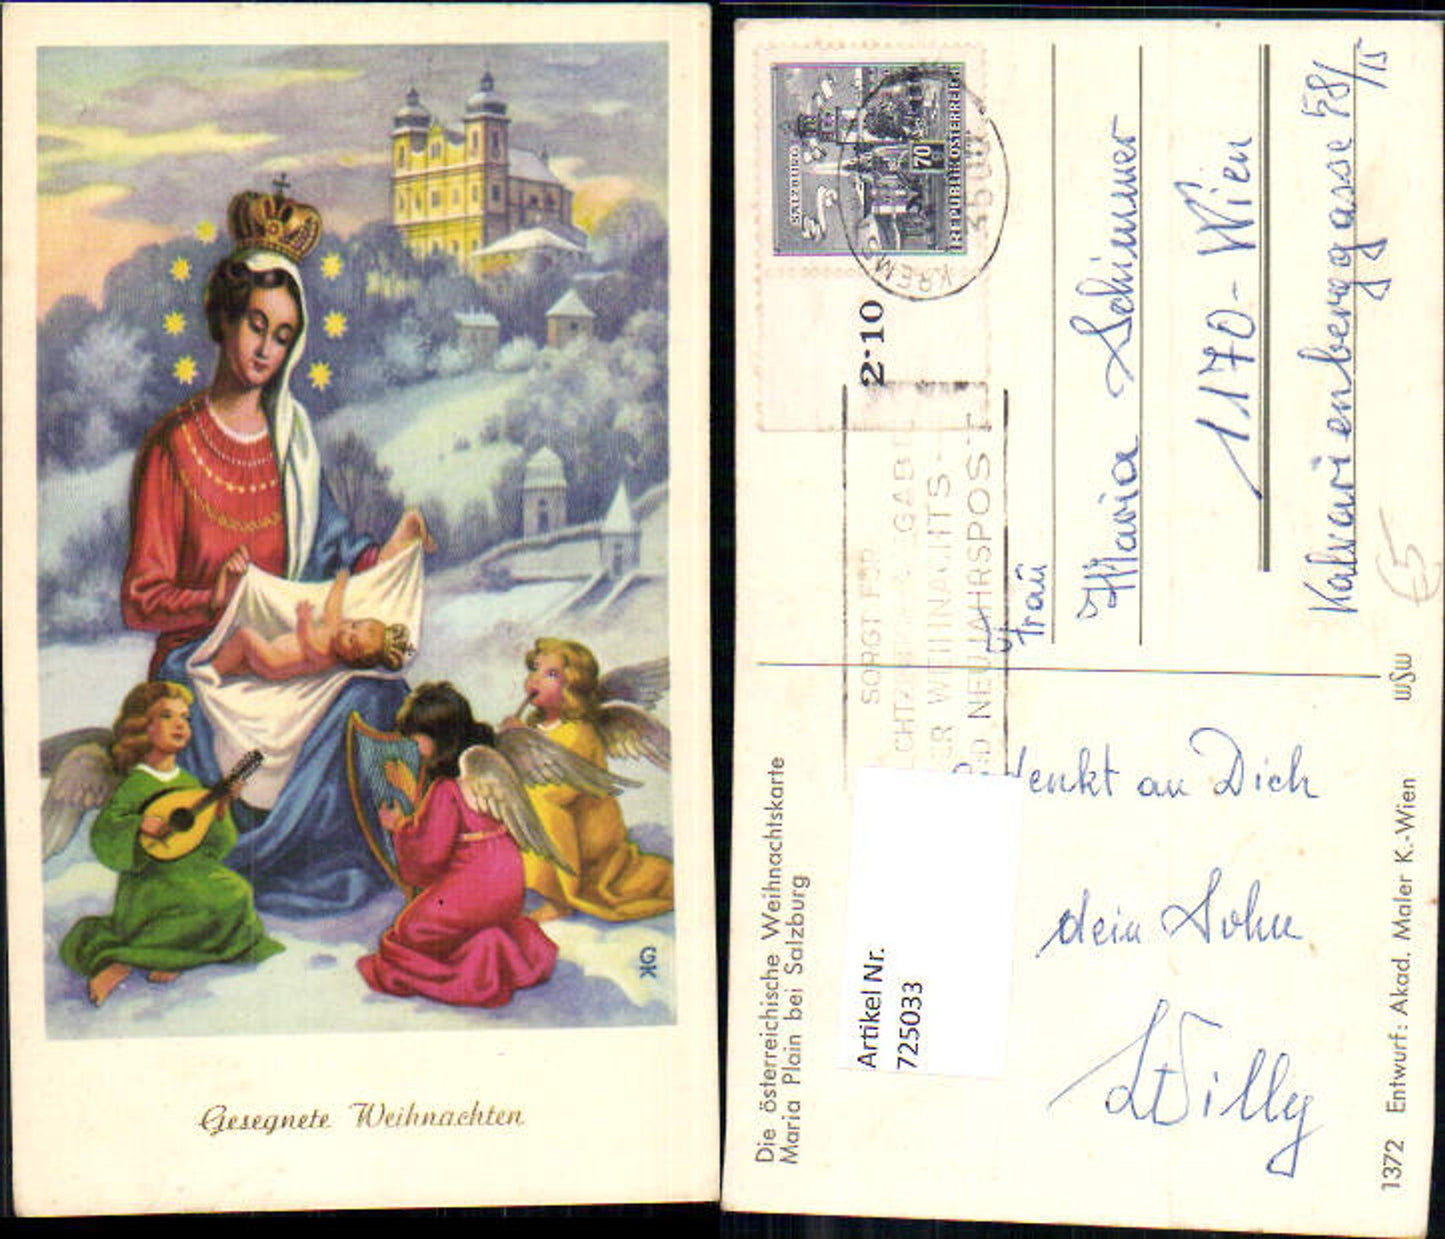 Gesegnete Weihnachten
GK
SALZBURG
70
REPUBLIK ÖSTERREICH
KREMS
2·10
SORGT FÜR
WEIHNACHTS-
NEUJAHRSPOST
Frau
Maria Schimmer
1170-Wien
Kalvarienberggasse 58/15
€5
Die österreichische Weihnachtskarte
Maria Plain bei Salzburg
Artikel Nr.
725033
denkt an Dich
dein Sohn
Willy
1372 Entwurf: Akad. Maler K.-Wien
WSW